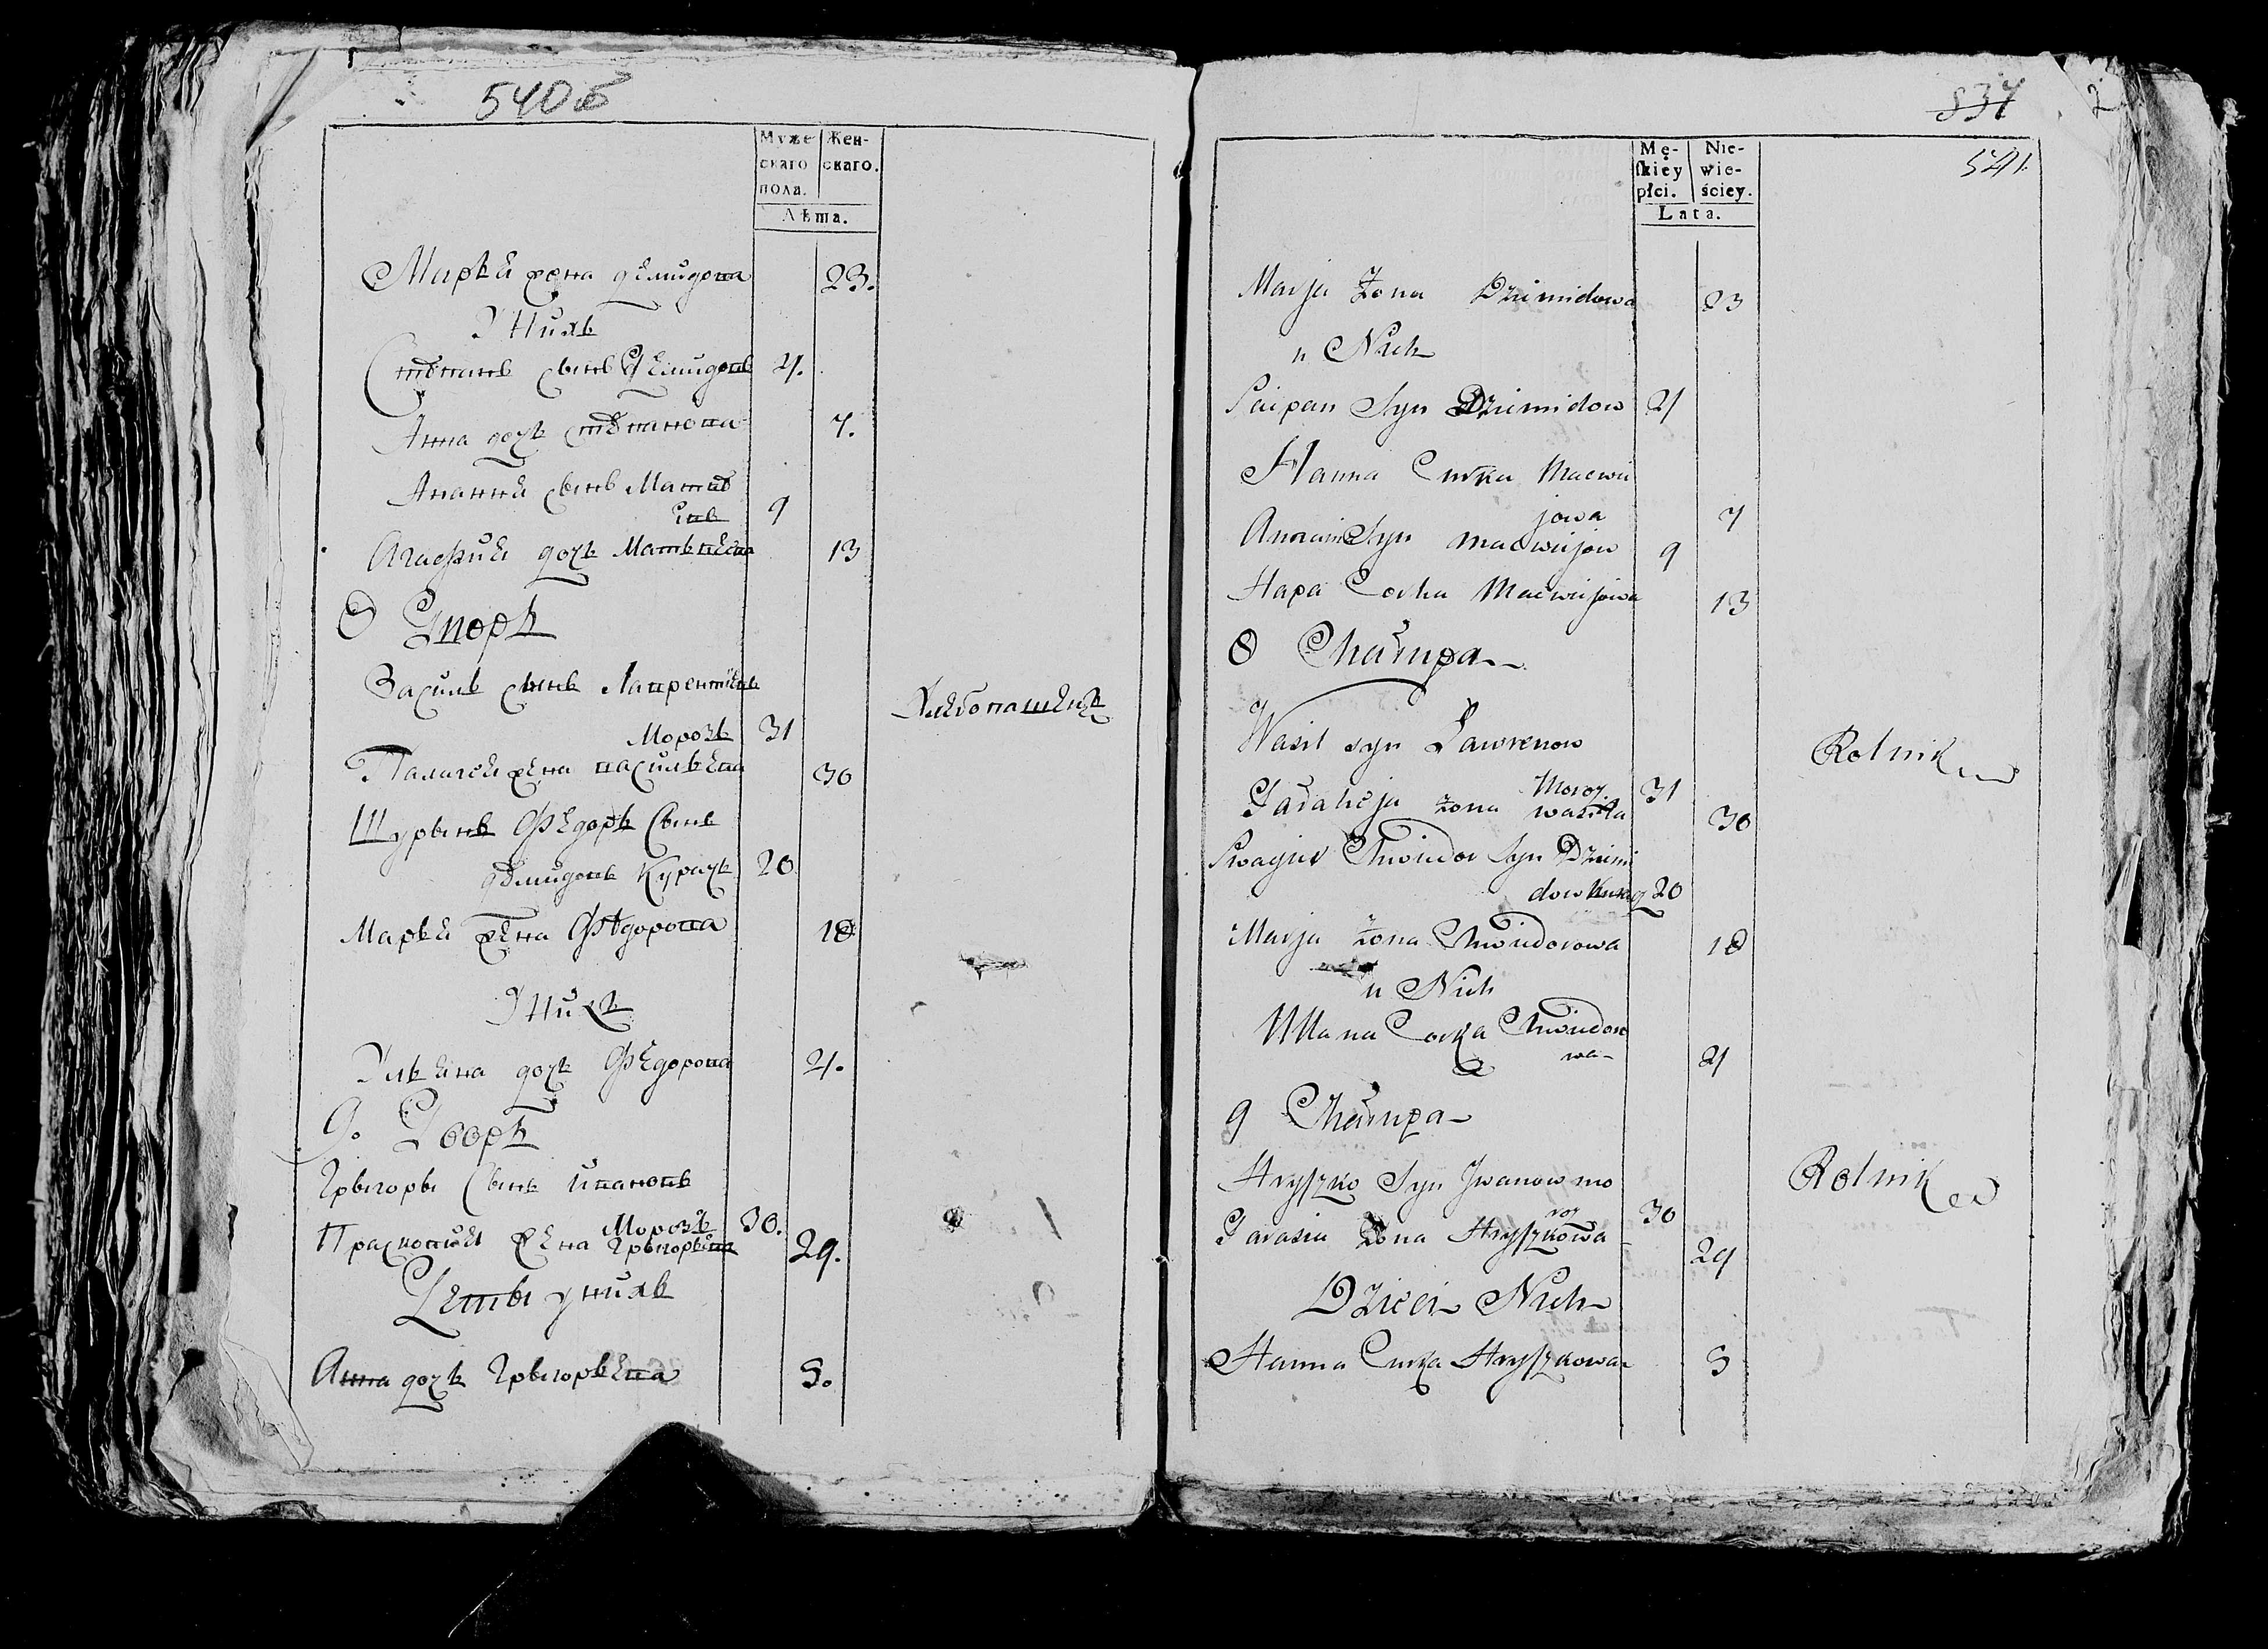 540б
Муже
скаго
пола.
Жен-
скаго.
Лѣта.
Марья жена демидова 23.
У Нихъ
Стѣпанъ сынъ Демидовъ 2/.
Анна дочь стѣпанова 7.
Ананий сынъ Матвѣ
евъ 9
Агафия дочь Матвѣева 13
8 Дворъ
Василь сынъ Лаврентиевъ
Морозъ 31
Хлебопашецъ
Палагея жена васильева 30
Шурынъ Федоръ Сынъ
дѣмидовъ Курачъ 20
Марья жена Федорова 18
У Нихъ
Ульяна дочь Федорова 2/.
9. Дворъ
Грыгоры Сынъ Ивановъ
Морозъ 30.
Прасковия жена Грыгорьева 29.
Дети у нихъ
Анна дочь Грыгорьева 5.
834
2
541
Mę-
skiey
płci.
Nie-
wie-
ściey.
Lata.
Marja Żona Dziemidowa 23
u Nich
Sciepan Syn Dziemidow 2/
Hanna Curka Macwie
jowa 7
Syn Macwiejow 9
Hapa Corka Macwiejowa 13
8 Chałupa
Wasil syn Ławrenow
Moroz 31
Rolnik
żona wasila 30
Swagier Chwiedor Syn Dziemi
dow Kuracz 20
Marja żona Chwiedorowa 18
u Nich
Ullana Corka Chwiedoro
wa 2/
9 Chałupa
Hryszko Syn Jwanow mo
roz 30
Rolnik
Parasia Żona Hryszkowa 29
Dzieci Nich
Hanna Curka Hryszkowa 5